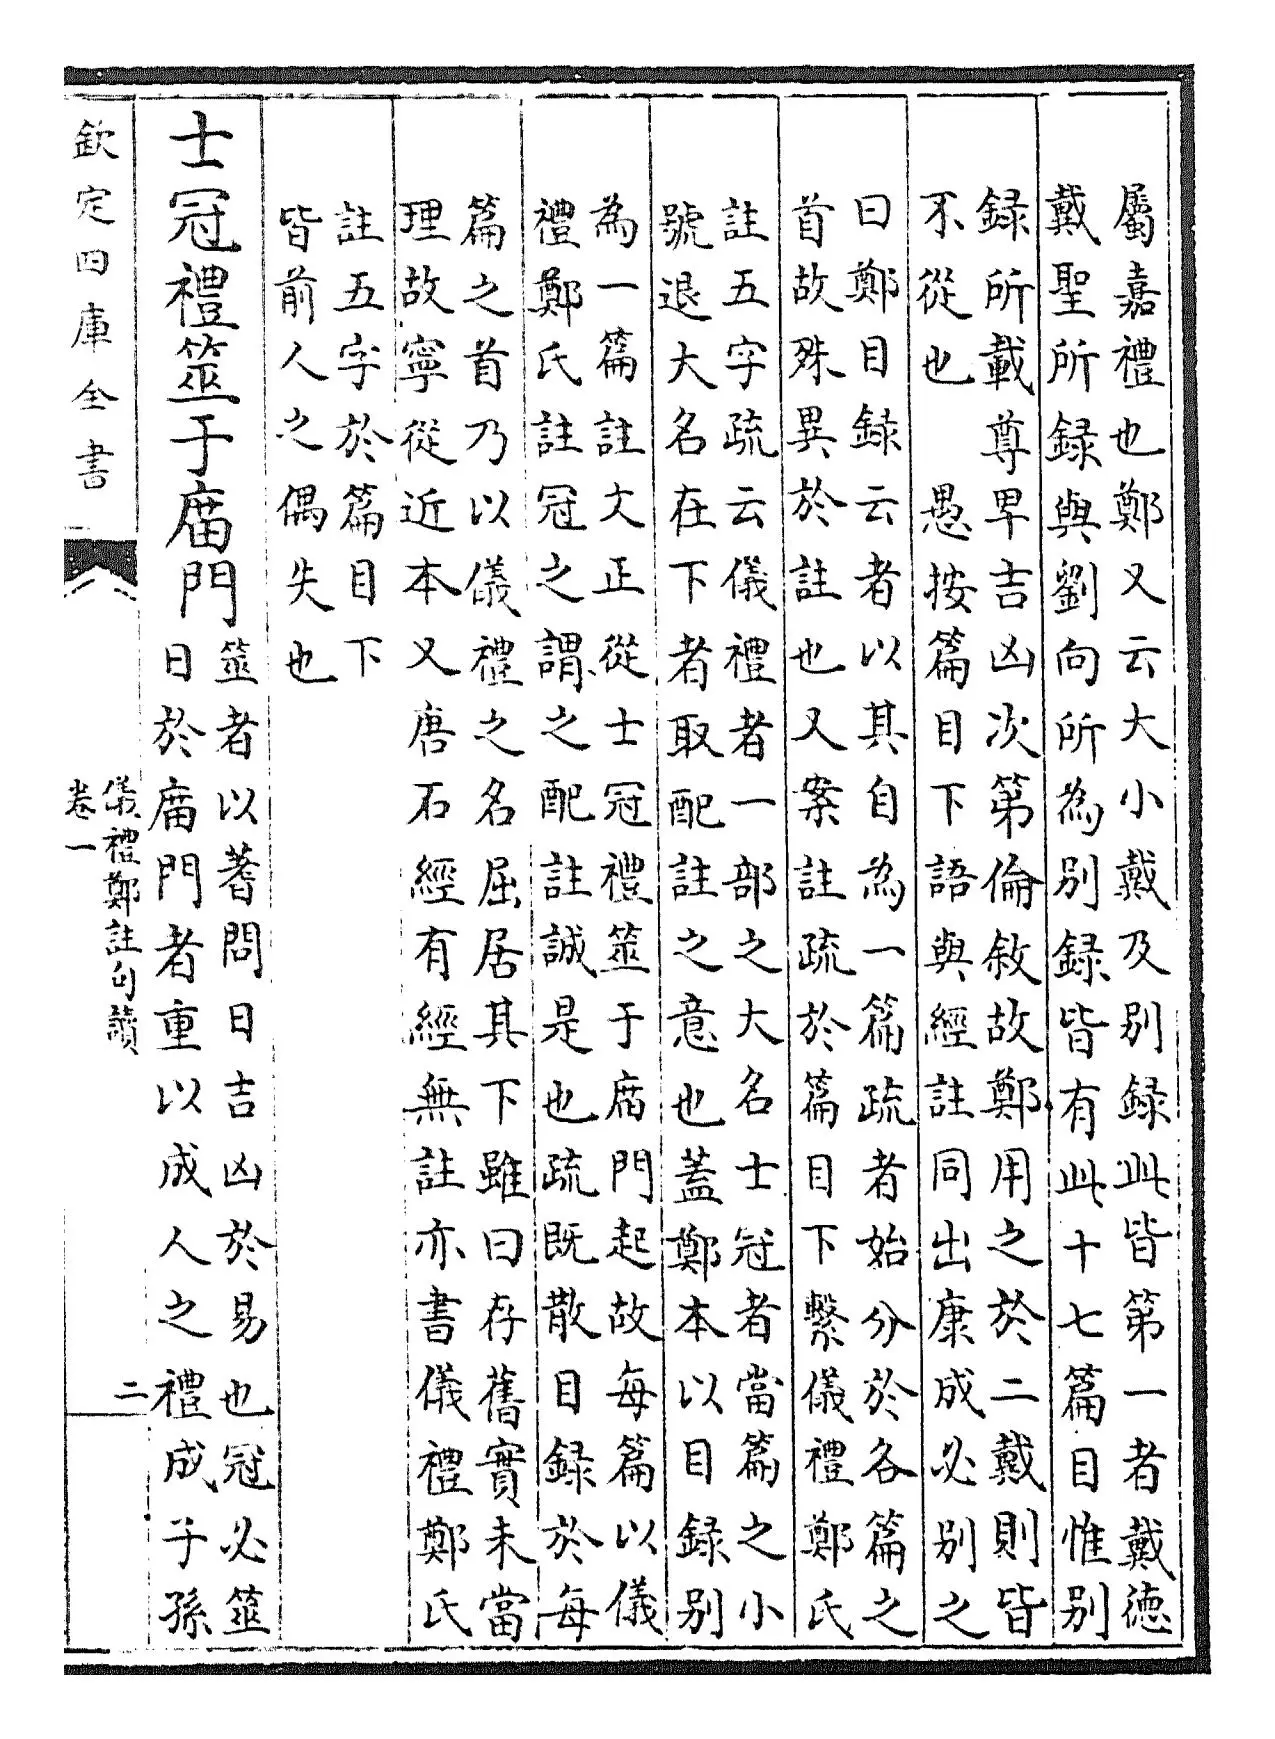 屬嘉禮也鄭又云大小戴及别録此皆第一者戴德
戴聖所録與劉向所為别録皆有此十七篇目惟别
録所載尊卑吉凶次第倫敘故鄭用之於二戴則皆
不從也　愚按篇目下語與經註同出康成必别之
曰鄭目録云者以其自為一篇疏者始分於各篇之
首故殊異於註也又案註疏於篇目下繫儀禮鄭氏
註五字疏云儀禮者一部之大名士冠者當篇之小
號退大名在下者取配註之意也蓋鄭本以目録别
為一篇註文正從士冠禮筮于庿門起故每篇以儀
禮鄭氏註冠之謂之配註誠是也疏既散目録於每
篇之首乃以儀禮之名屈居其下雖曰存舊實未當
理故寧從近本又唐石經有經無註亦書儀禮鄭氏
註五字於篇目下
皆前人之偶失也
士冠禮筮于庿門
筮者以蓍問日吉凶於易也冠必筮
日於庿門者重以成人之禮成子孫
欽定四庫全書
儀禮鄭註句讀
卷一
二